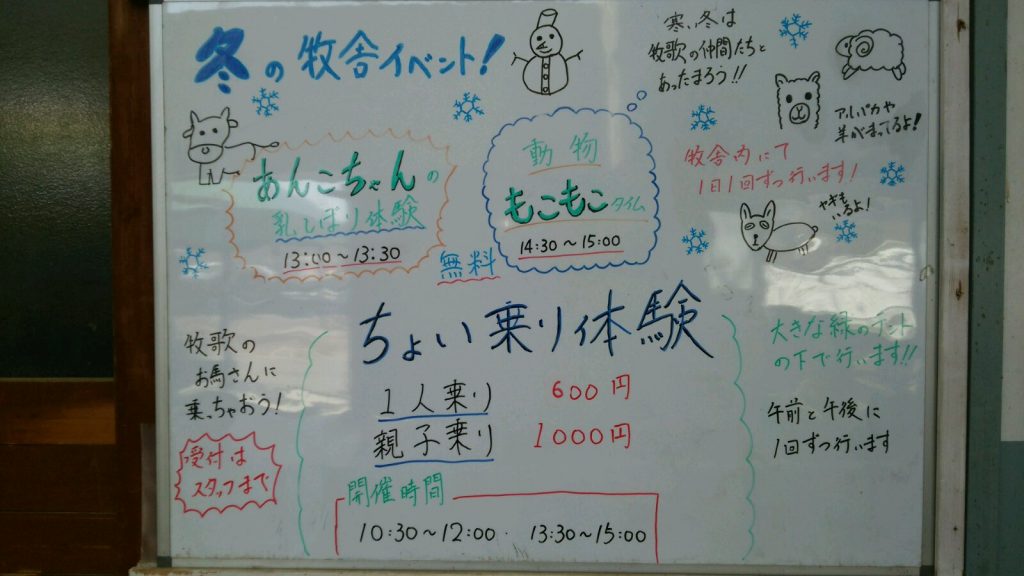 冬の牧舎イベント!
寒い冬は
牧歌の仲間たちと
あったまろう!!
アルパカや
羊がまってるよ!
あんこちゃんの
乳しぼり体験
13:00~13:30
動物
もこもこタイム
14:30~15:00
無料
牧舎内にて
1日1回ずつ行います!
ヤギも
いるよ!
ちょい乗り体験
牧歌の
お馬さんに
乗っちゃおう!
受付は
スタッフまで
1人乗り 600円
親子乗り 1000円
開催時間
10:30~12:00 13:30~15:00
大きな緑のテント
の下で行います!!
午前と午後に
1回ずつ行います